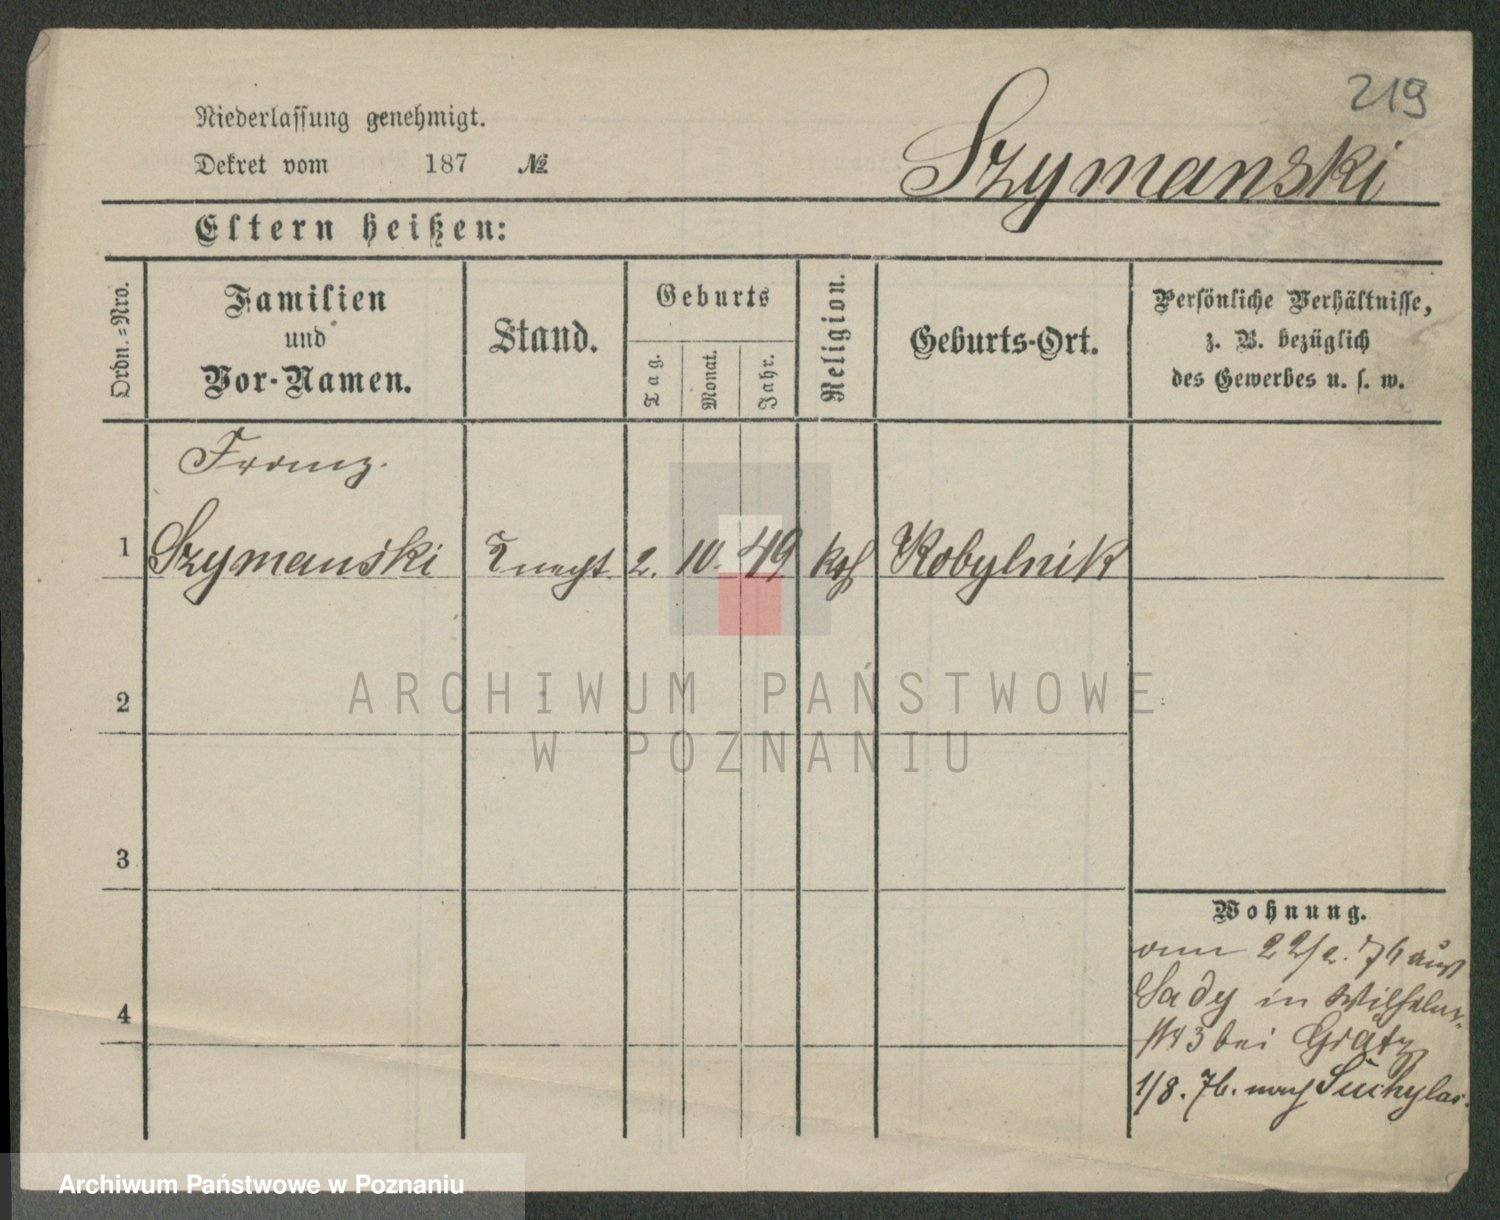 219
Niederlassung genehmigt.
Dekret vom 187 №
Szymanski
Eltern heißen:
Ordn.-Nro.
Familien
und
Vor-Namen.
Stand.
Geburts
Tag.
Monat.
Jahr.
Religion.
Geburts-Ort.
Persönliche Verhältnisse,
z. B. bezüglich
des Gewerbes u. s. w.
Franz.
1 Szymanski Knecht. 2. 10. 49 kath Kobylnik
2
3
4
Wohnung.
am 22/2. 76 aus
Sady in Wilhelms-
bei Grätz
1/8. 76. nach Suchylas.
ARCHIWUM PAŃSTWOWE
W POZNANIU
Archiwum Państwowe w Poznaniu